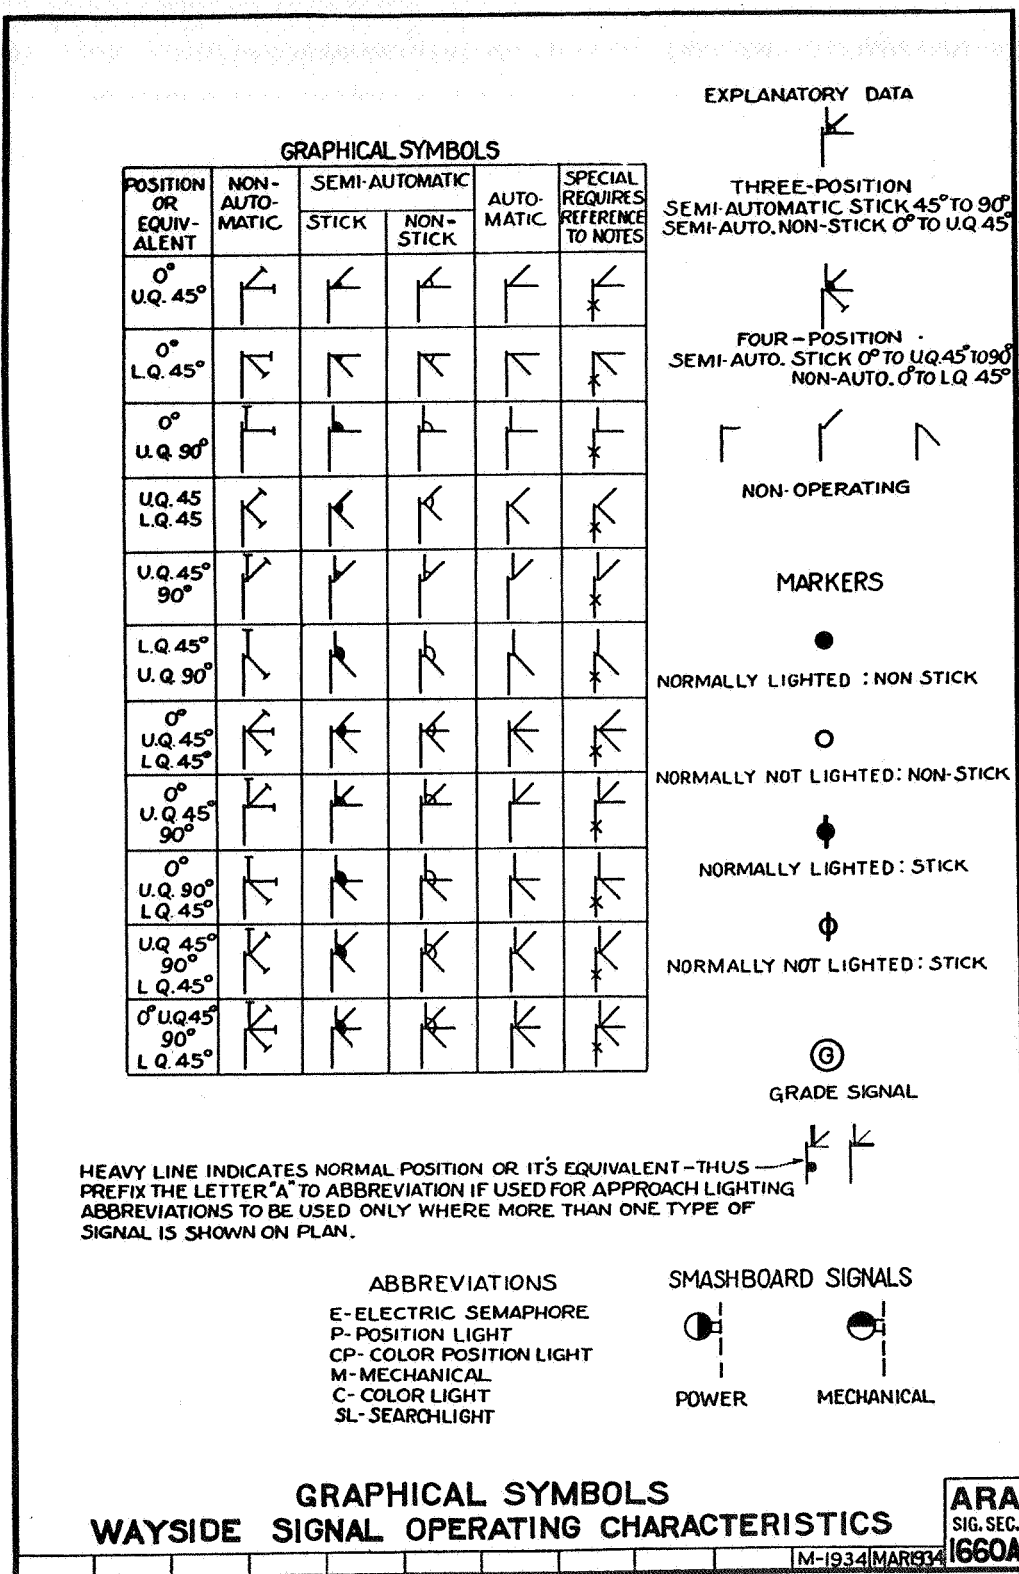 GRAPHICAL SYMBOLS
POSITION OR EQUIV-ALENT
NON-AUTO-MATIC
SEMI-AUTOMATIC
STICK
NON-STICK
AUTO-MATIC
SPECIAL REQUIRES REFERENCE TO NOTES
0°
U.Q. 45°
0°
L.Q. 45°
0°
U.Q. 90°
U.Q. 45
L.Q. 45
U.Q. 45°
90°
L.Q. 45°
U.Q. 90°
0°
U.Q. 45°
L Q. 45°
0°
U.Q. 45°
90°
0°
U.Q. 90°
L Q. 45°
U.Q 45°
90°
L Q. 45°
0° U.Q.45°
90°
L Q. 45°
EXPLANATORY DATA
THREE-POSITION
SEMI-AUTOMATIC STICK 45° TO 90°
SEMI-AUTO. NON-STICK 0° TO U.Q 45°
FOUR-POSITION
SEMI-AUTO. STICK 0° TO U.Q.45° TO 90°
NON-AUTO. 0° TO L.Q 45°
NON-OPERATING
MARKERS
NORMALLY LIGHTED : NON STICK
NORMALLY NOT LIGHTED: NON-STICK
NORMALLY LIGHTED: STICK
NORMALLY NOT LIGHTED: STICK
G
GRADE SIGNAL
HEAVY LINE INDICATES NORMAL POSITION OR IT'S EQUIVALENT-THUS
PREFIX THE LETTER "A" TO ABBREVIATION IF USED FOR APPROACH LIGHTING
ABBREVIATIONS TO BE USED ONLY WHERE MORE THAN ONE TYPE OF
SIGNAL IS SHOWN ON PLAN.
ABBREVIATIONS
E-ELECTRIC SEMAPHORE
P-POSITION LIGHT
CP-COLOR POSITION LIGHT
M-MECHANICAL
C-COLOR LIGHT
SL-SEARCHLIGHT
SMASHBOARD SIGNALS
POWER
MECHANICAL
GRAPHICAL SYMBOLS
WAYSIDE SIGNAL OPERATING CHARACTERISTICS
M-1934 MAR 1934
ARA
SIG. SEC.
1660A